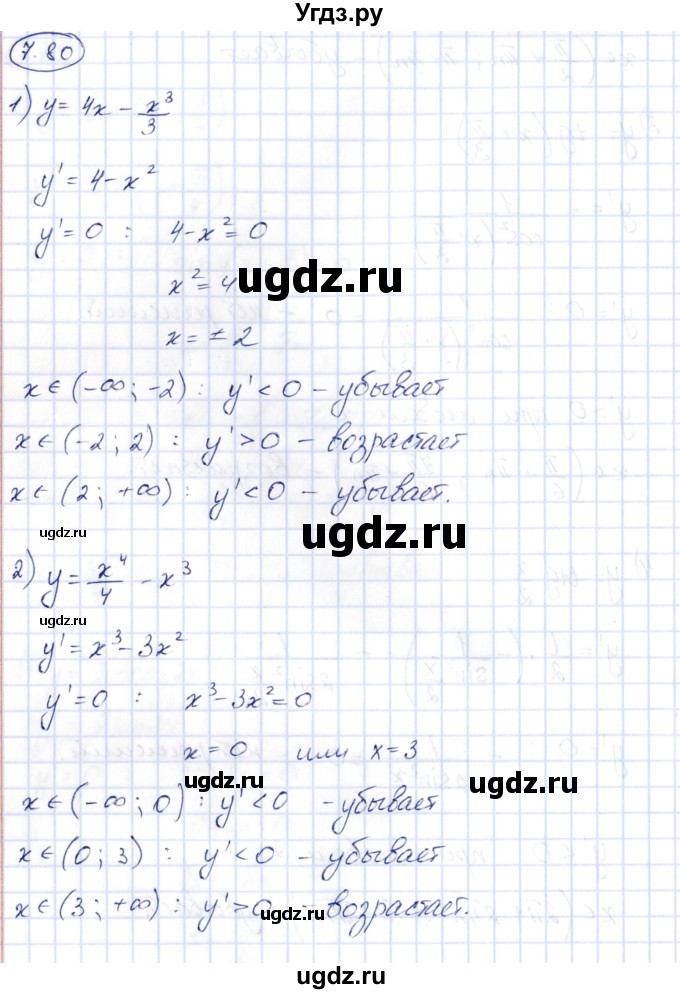 Угдз.ру
7.80
1) y = 4x - x³/3
y' = 4 - x²
y' = 0 : 4 - x² = 0
ugdz.ru
x² = 4
x = ± 2
x ∈ (-∞; -2) : y' < 0 - убывает
x ∈ (-2; 2) : y' > 0 - возрастает
x ∈ (2; +∞) : y' < 0 - убывает.
ugdz.ru
ugdz.ru
2) y = x⁴/4 - x³
ugdz.ru
y' = x³ - 3x²
y' = 0 : x³ - 3x² = 0
x = 0 или x = 3
ugdz.ru
ugdz.ru
x ∈ (-∞; 0) : y' < 0 - убывает
x ∈ (0; 3) : y' < 0 - убывает
x ∈ (3; +∞) : y' > 0 - возрастает.
ugdz.ru
ugdz.ru